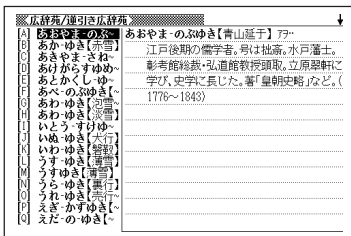 ≪広辞苑/逆引き広辞苑≫
[A] あおやま-のぶ~
[B] あか-ゆき【赤雪】
[C] あきやま-さね~
[D] あけがらすゆめ~
[E] あとかくし-ゆ~
[F] あべ-のぶゆき【~
[G] あわ-ゆき【泡雪】
[H] あわ-ゆき【淡雪】
[I] いとう-すけゆ~
[J] いぬ-ゆき【犬行】
[K] いわ-ゆき
[L] うす-ゆき【薄雪】
[M] うすゆき【薄雪】
[N] うら-ゆき【裏行】
[O] うれ-ゆき【売行~
[P] えぎ-かずゆき【~
[Q] えだ-の-ゆき【~
あおやま-のぶゆき【青山延于】アヲ‥
江戸後期の儒学者。号は拙斎。水戸藩士。
彰考館総裁・弘道館教授頭取。立原翠軒に
学び、史学に長じた。著「皇朝史略」など。(
1776~1843)